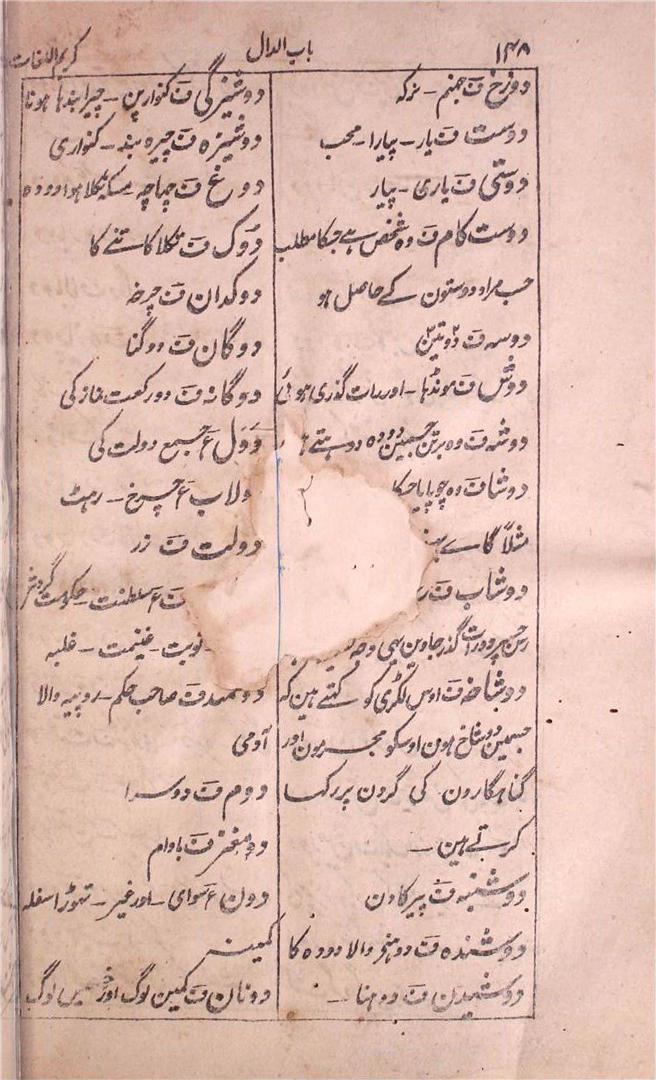 ۱۴۸
باب الدال
کریم اللغات
دوزخ ف جہنم - نرکہ
دوست ف یار - پیارا - محب
دوستی ف یاری - پیار
دوست کام ف وہ شخص ہے جسکا مطلب
حسب مراد دوستون کے حاصل ہو
دوسہ ف دو تین
دوش ف مونڈہا - اور رات گذری ہوئی
دوشہ ف وہ برتن جسمین دودہ دوہتے
دوشا ف وہ چوپایا جسکا
مثلاً گاے بہینس
دوشاب ف
رس جسپر دو رات گذر جاوین یہی وجہ
دوشاخہ ف اوس لکڑی کو کہتے ہین کہ
جسمین دو شاخ ہون اوسکو مجرمون اور
گناہگارون کی گردن پر رکہا
کرتے ہین -
دوشنبہ ف پیر کا دن
دوشندہ ف دوہنے والا دودہ کا
دوشیدن ف دوہنا -
دوشیزگی ف کنوارپن - چیرا بندہا ہونا
دوشیزہ ف چیرہ بند - کنواری
دوغ ف چہاچہ - مسکہ نکلا ہوا دودہ
دوک ف تکلا کاتنے کا
دوکدان ف چرخہ
دوگان ف دوگنا
دوگانہ ف دو رکعت نماز کی
دول ع جمع دولت کی
ولاب ع چرخ - رہٹ
دولت ف زر
ف ع سلطنت - حکومت گردش
نوبت - غنیمت - غلبہ
دولتمند ف صاحب حکم - روپیہ والا
آدمی
دوم ف دوسرا
دومغز ف بادام
دون ع سوای - اور غیر - تہوڑا سفلہ
کمینہ
دونان ف کمین لوگ اور خسیس لوگ